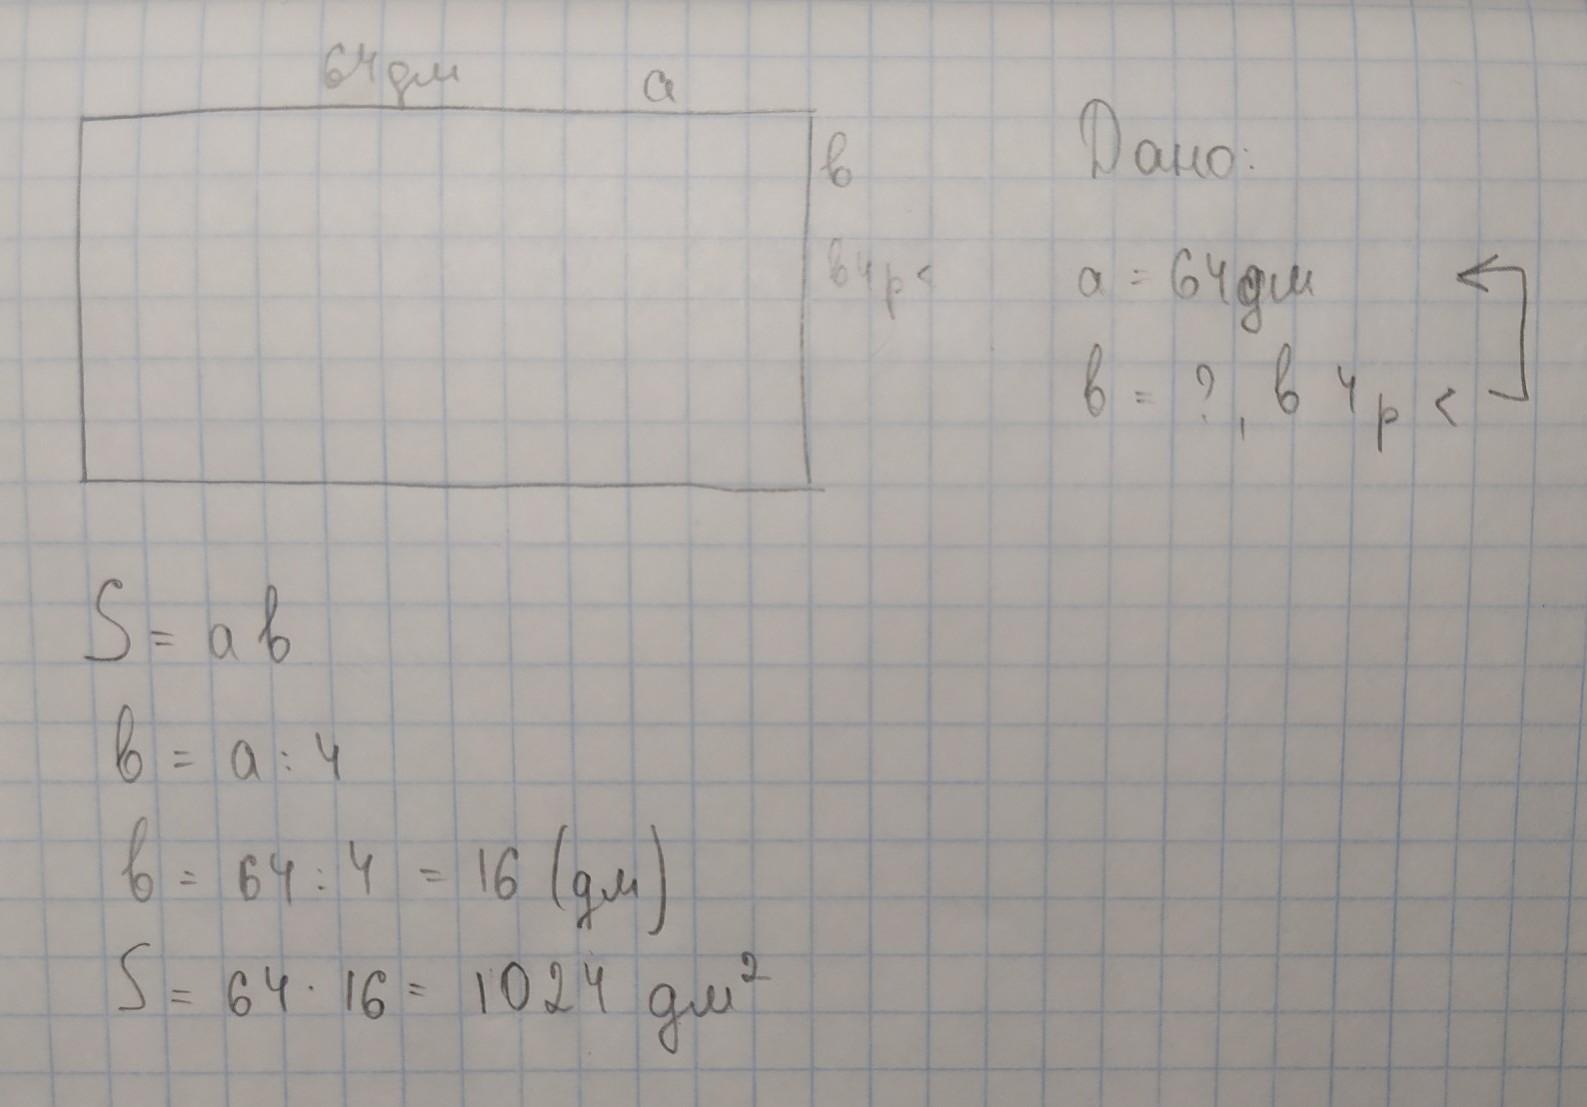 64дм a
в
в 4 р <
Дано:
a = 64дм
в = ?, в 4 р <
S = a в
в = a : 4
в = 64 : 4 = 16 (дм)
S = 64 · 16 = 1024 дм²